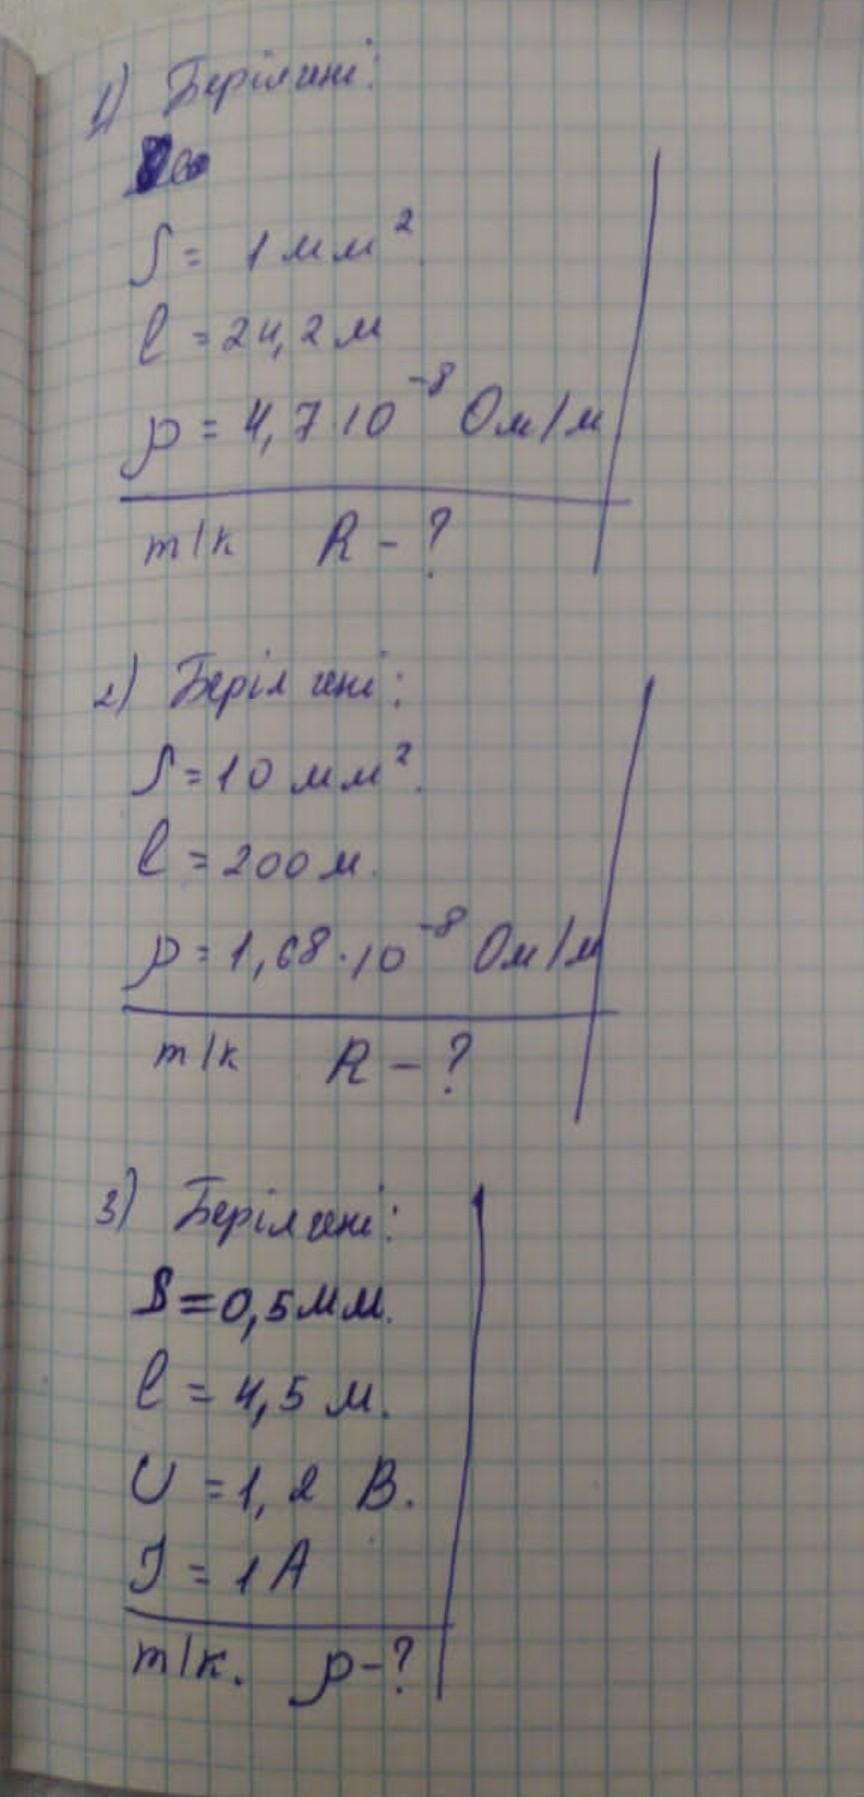 1) Берілгені:
S = 1 мм²
l = 24,2 м
ρ = 4,7 10⁻⁸ Ом/м
т/к R - ?
2) Берілгені:
S = 10 мм².
l = 200 м.
ρ = 1,68 · 10⁻⁸ Ом/м
т/к R - ?
3) Берілгені:
S = 0,5 мм.
l = 4,5 м.
U = 1,2 В.
J = 1 А
т/к. ρ - ?